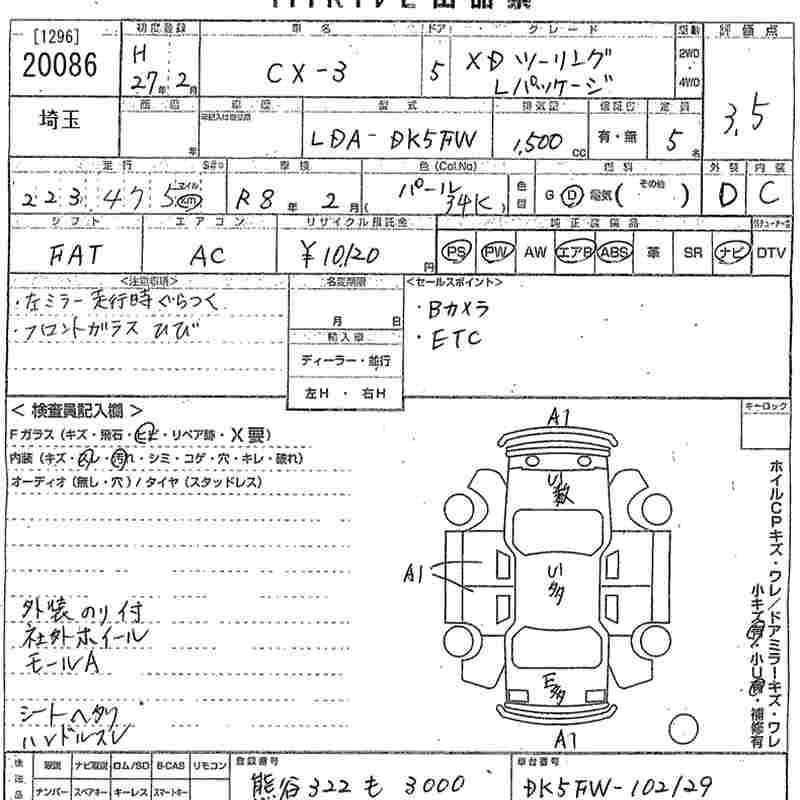 [1296]
20086
初度登録
H
27年 2月
車名
CX-3
ドア
5
グレード
XD ツーリング
Lパッケージ
2WD
4WD
評価点
3.5
埼玉
車歴
年
型式
LDA-DK5FW
排気記
1,500 cc
保証印
有・無
定員
5名
走行
223,475
マイル
km
車検
R8年 2月
色(Col.No)
パール
34K
色目
燃料
G D 電気( その他 )
外装
D
内装
C
シフト
FAT
エアコン
AC
リサイクル預託金
¥10120円
純正装備品
PS PW AW エアB ABS 革 SR ナビ DTV
<注意事項>
・左ミラー走行時ぐらつく
・フロントガラス ひび
名変期限
月 日
輸入車
ディーラー・並行
左H ・ 右H
<セールスポイント>
・Bカメラ
・ETC
<検査員記入欄>
Fガラス(キズ・飛石・ヒビ・リペア跡・X要)
内装(キズ・スレ・汚れ・シミ・コゲ・穴・キレ・破れ)
オーディオ(無し・穴)/タイヤ(スタッドレス)
キーロック
A1
U1
数
A1
U1
多
E多
A1
ホイルCPキズ・ワレ/ドアミラーキズ・ワレ
小キズ有・小U有・補修有
外装のり付
社外ホイール
モールA
シートヘタリ
ハンドルスレ
後送品
取説 ナビ取説 ロム/SD B-CAS リモコン
ナンバー スペアキー キーレス スマートキー
登録番号
熊谷 322 も 3000
車台番号
DK5FW-102129